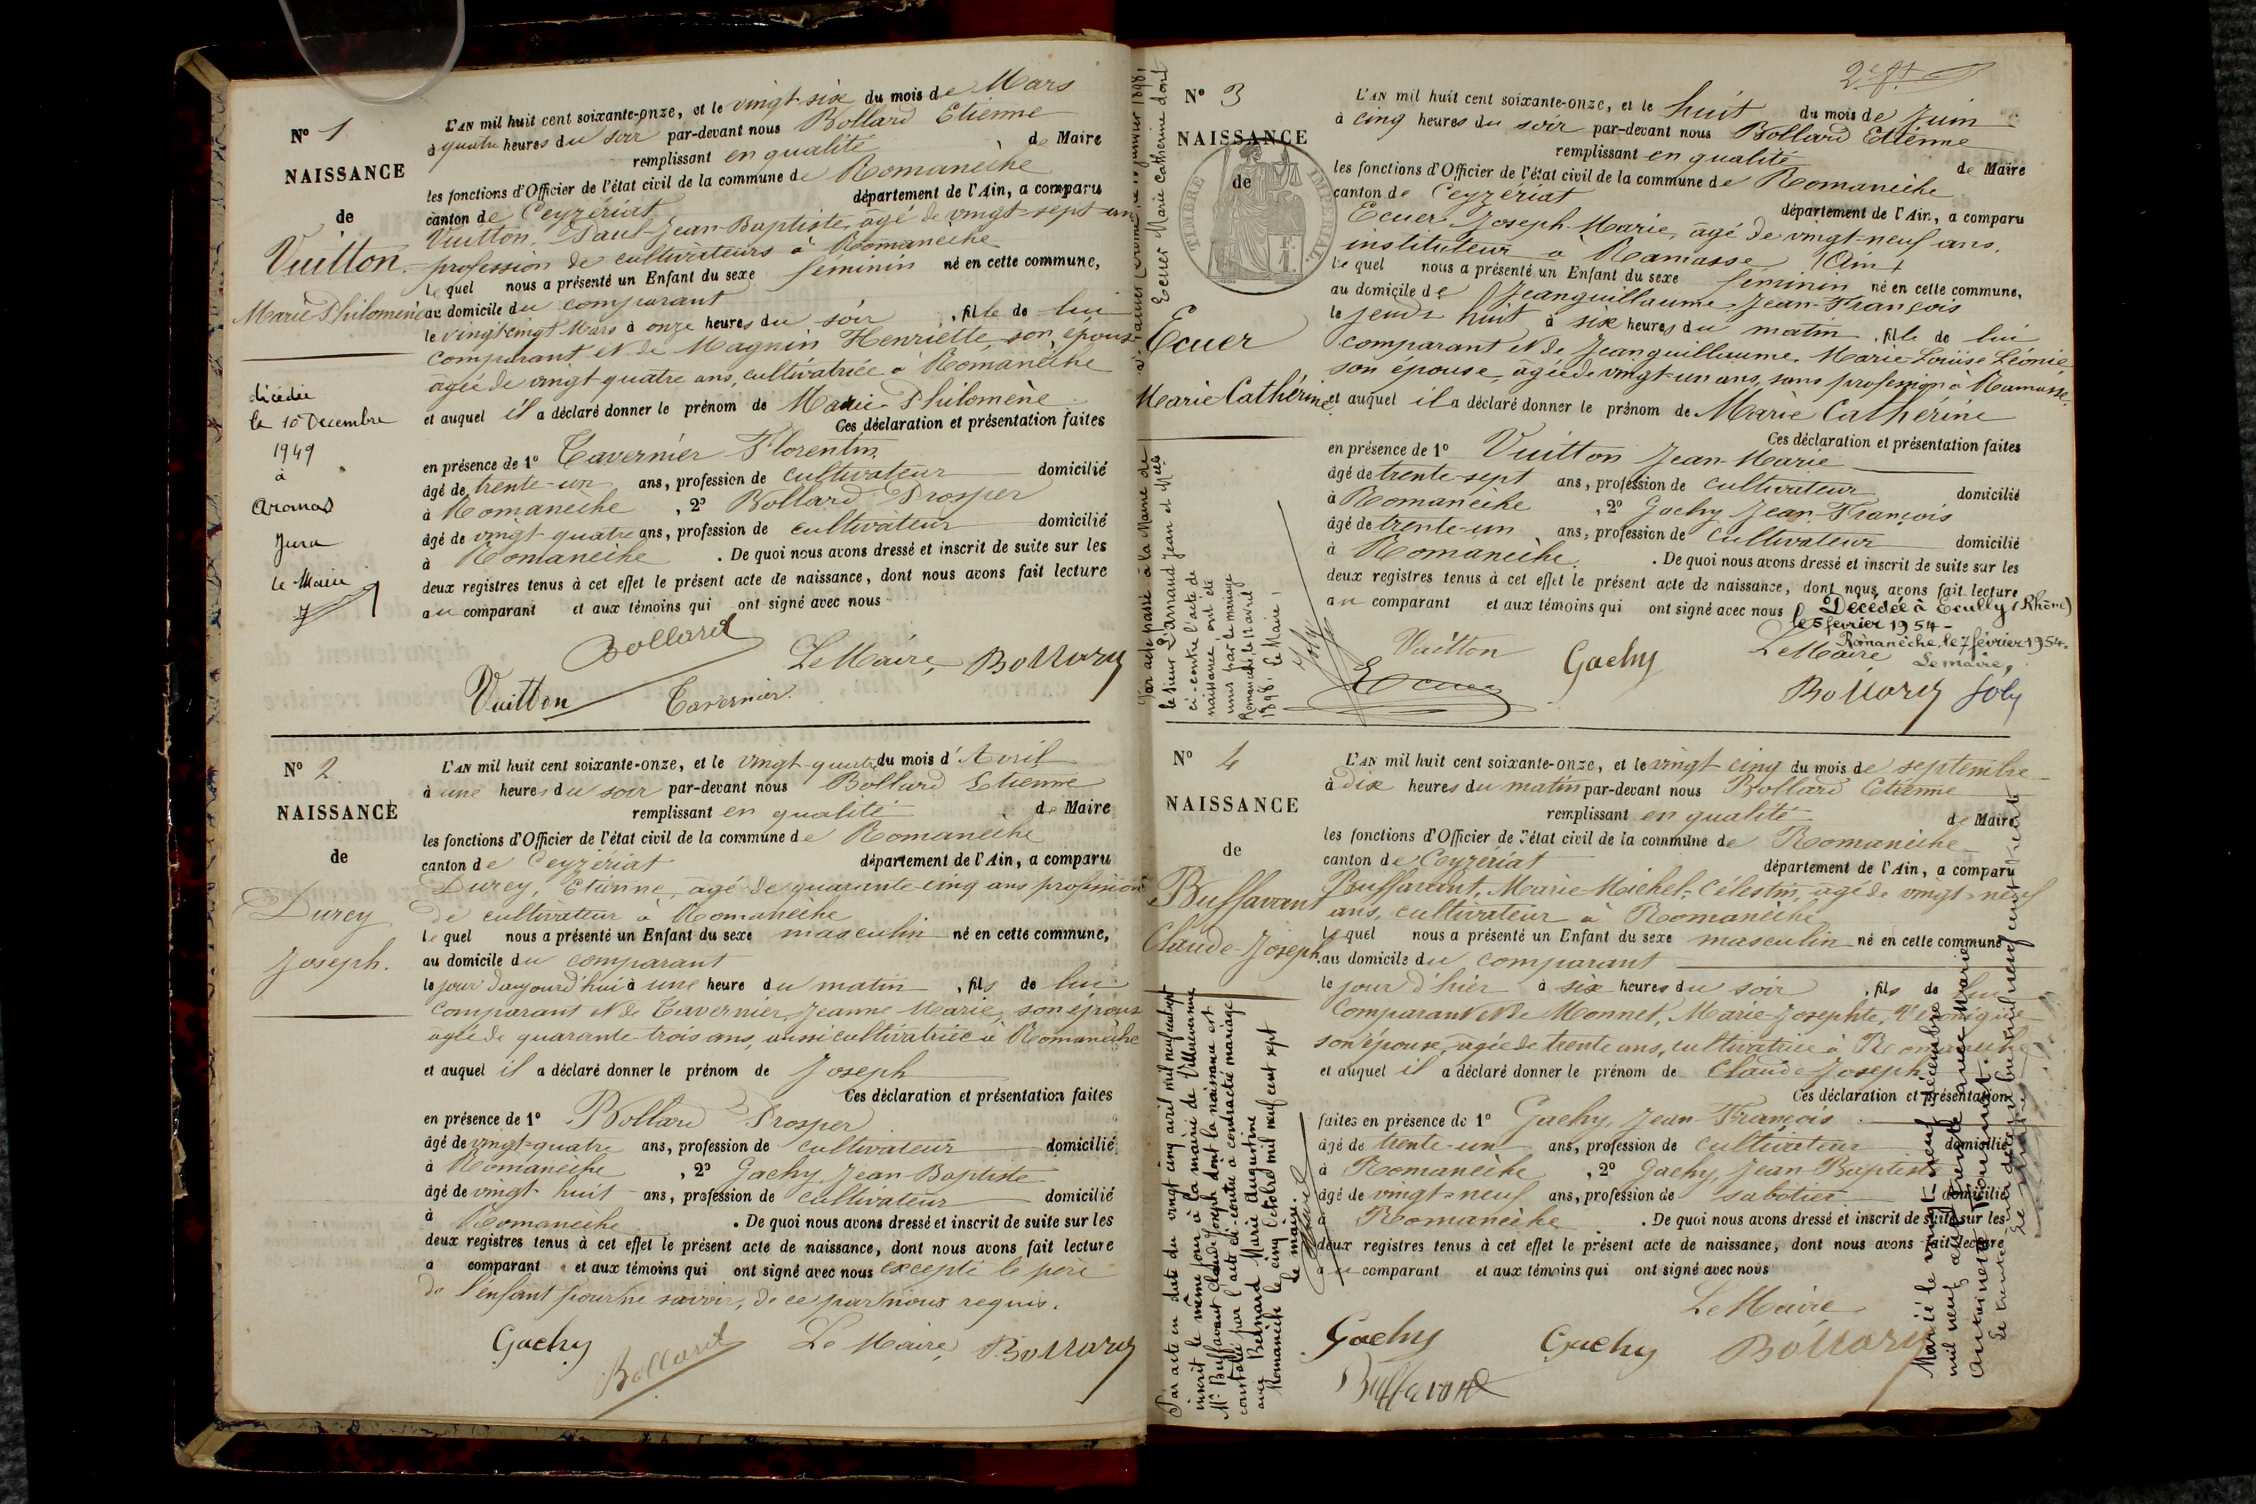 N° 1
NAISSANCE
de
Vuitton
Marie Philomène
décédée
le 10 Decembre
1949
à
Aromas
Jura
le Maire
L'AN mil huit cent soixante-onze, et le vingt-six du mois de Mars
à quatre heures du soir par-devant nous Bollard Etienne
remplissant en qualité de Maire
les fonctions d'Officier de l'état civil de la commune de Romanèche
canton de Ceyzériat département de l'Ain, a comparu
Vuitton, Paul-Jean-Baptiste, âgé de vingt-sept ans
profession de cultivateurs à Romanèche
lequel nous a présenté un Enfant du sexe féminin né en cette commune,
au domicile du comparant
le vingt cinqt Mars à onze heures du soir, fille de lui
comparant et de Magnin Henriette, son épouse
âgée de vingt quatre ans, cultivatrice à Romanèche
et auquel il a déclaré donner le prénom de Marie Philomène
Ces déclaration et présentation faites
en présence de 1° Tavernier Florentin
âgé de trente-un ans, profession de cultivateur domicilié
à Romanèche, 2° Bollard Prosper
âgé de vingt-quatre ans, profession de cultivateur domicilié
à Romanèche. De quoi nous avons dressé et inscrit de suite sur les
deux registres tenus à cet effet le présent acte de naissance, dont nous avons fait lecture
au comparant et aux témoins qui ont signé avec nous
Bollard
Le Maire, Bollard
Vuitton Tavernier
N° 2
NAISSANCE
de
Durey
Joseph.
L'AN mil huit cent soixante-onze, et le vingt-quatre du mois d'Avril
à une heures du soir par-devant nous Bollard Etienne
remplissant en qualité de Maire
les fonctions d'Officier de l'état civil de la commune de Romanèche
canton de Ceyzériat département de l'Ain, a comparu
Durey, Etienne, âgé de quarante-cinq ans profession
de cultivateur à Romanèche
lequel nous a présenté un Enfant du sexe masculin né en cette commune,
au domicile du comparant
le jour d'aujourd'hui à une heure du matin, fils de lui
comparant et de Tavernier, Jeanne Marie, son épouse
âgée de quarante trois ans, aussi cultivatrice à Romanèche
et auquel il a déclaré donner le prénom de Joseph
Ces déclaration et présentation faites
en présence de 1° Bollard Prosper
âgé de vingt-quatre ans, profession de cultivateur domicilié
à Romanèche, 2° Gachy Jean-Baptiste
âgé de vingt-huit ans, profession de cultivateur domicilié
à Romanèche. De quoi nous avons dressé et inscrit de suite sur les
deux registres tenus à cet effet le présent acte de naissance, dont nous avons fait lecture
a comparant et aux témoins qui ont signé avec nous excepté le père
de l'enfant pour ne savoir, de ce par nous requis.
Gachy Bollard Le Maire, Bollard
2e ft
N° 3
NAISSANCE
de
TIMBRE IMPERIAL
Ecuer
Marie Cathérine
L'AN mil huit cent soixante-onze, et le huit du mois de Juin
à cinq heures du soir par-devant nous Bollard Etienne
remplissant en qualité de Maire
les fonctions d'Officier de l'état civil de la commune de Romanèche
canton de Ceyzériat département de l'Ain, a comparu
Ecuer, Joseph-Marie, âgé de vingt-neuf ans,
instituteur à Ramasse (Ain)
lequel nous a présenté un Enfant du sexe féminin né en cette commune,
au domicile de Jeanguillaume Jean-François
le jeudi huit à six heures du matin, fille de lui
comparant et de Jeanguillaume, Marie-Louise Léonie
son épouse, âgée de vingt-un ans, sans profession à Ramasse.
et auquel il a déclaré donner le prénom de Marie Cathérine
Ces déclaration et présentation faites
en présence de 1° Vuitton Jean-Marie
âgé de trente-sept ans, profession de cultivateur domicilié
à Romanèche, 2° Gachy Jean-François
âgé de trente-un ans, profession de cultivateur domicilié
à Romanèche. De quoi nous avons dressé et inscrit de suite sur les
deux registres tenus à cet effet le présent acte de naissance, dont nous avons fait lecture
au comparant et aux témoins qui ont signé avec nous
Décédée à Ecully (Rhône)
le 5 février 1954-
Romanèche, le 7 février 1954.
Le maire,
Joly
Vuitton Gachy Le Maire
Ecuer Bollard
Par acte passé à la Mairie de
le sieur Jean et Mlle
Ecuer Marie Catherine dont
ci-contre l'acte de
naissance, ont été
unis par le mariage
Romanèche, le 12 avril
1898, Le Maire,
Joly
N° 4
NAISSANCE
de
Buffavant
Claude-Joseph
L'AN mil huit cent soixante-onze, et le vingt cinq du mois de septembre
à dix heures du matin par-devant nous Bollard Etienne
remplissant en qualité de Maire
les fonctions d'Officier de l'état civil de la commune de Romanèche
canton de Ceyzériat département de l'Ain, a comparu
Buffavant, Marie-Michel-Célestin, âgé de vingt-neuf
ans, cultivateur à Romanèche
lequel nous a présenté un Enfant du sexe masculin né en cette commune
au domicile du comparant
le jour d'hier à six heures du soir, fils de lui
comparant et de Monnet, Marie-Josephte, Véronique
son épouse, âgée de trente ans, cultivatrice à Romanèche
et auquel il a déclaré donner le prénom de Claude-Joseph
Ces déclaration et présentation
faites en présence de 1° Gachy, Jean-François
âgé de trente-un ans, profession de cultivateur domicilié
à Romanèche, 2° Gachy, Jean-Baptiste
âgé de vingt-neuf ans, profession de sabotier domicilié
à Romanèche. De quoi nous avons dressé et inscrit de suite sur les
deux registres tenus à cet effet le présent acte de naissance, dont nous avons fait lecture
au comparant et aux témoins qui ont signé avec nous
Le Maire
Gachy Gachy Bollard
Buffavant
Par acte en date du vingt cinq avril mil neuf cent sept
inscrit le même jour à la mairie de Villereversure
Mr Buffavant Claude Joseph dont la naissance est
constatée par l'acte ci-contre a contracté mariage
avec Bernard Marie Augustine
Romanèche le cinq Octobre mil neuf cent sept
Le maire
Marié le vingt-neuf décembre
mil neuf cent
Antoinette
Le trente un décembre mil neuf cent trente